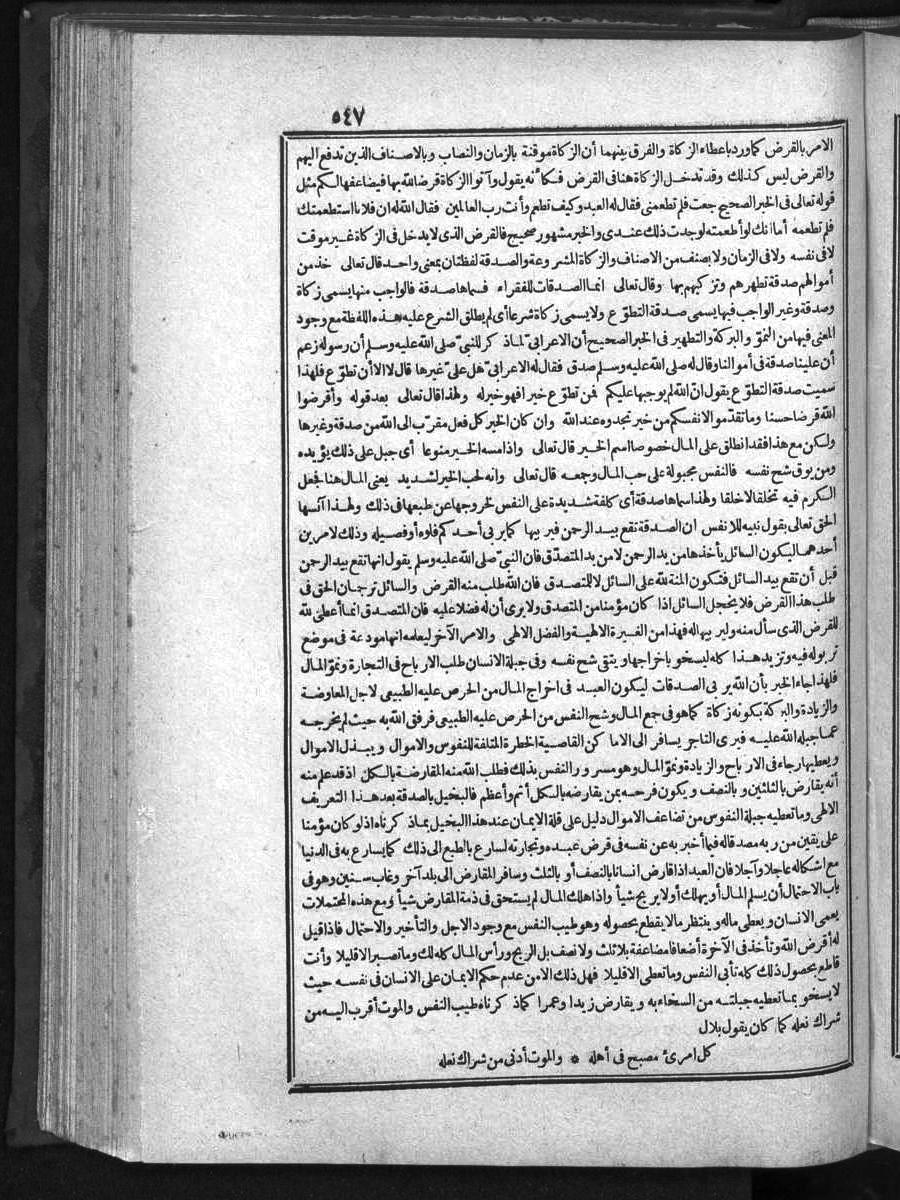 ٥٤٧
الامر بالقرض كما ورد باعطاء الزكاة والفرق بينهما أن الزكاة موقتة بالزمان والنصاب وبالاصناف الذين تدفع اليهم
والقرض ليس كذلك وقد تدخل الزكاة هنا فى القرض فكأنه يقول وآتوا الزكاة قرضا لله بها فيضاعفها لكم مثل
قوله تعالى فى الخبر الصحيح جعت فلم تطعمنى فقال له العبد وكيف تطعم وأنت رب العالمين فقال الله له ان فلانا استطعمك
فلم تطعمه أما انك لو أطعمته لوجدت ذلك عندى والخبر مشهور صحيح فالقرض الذى لا يدخل فى الزكاة غير موقت
لا فى نفسه ولا فى الزمان ولا بصنف من الاصناف والزكاة المشروعة والصدقة لفظتان بمعنى واحد قال تعالى خذ من
أموالهم صدقة تطهرهم وتزكيهم بها وقال تعالى انما الصدقات للفقراء فسماها صدقة فالواجب منها يسمى زكاة
وصدقة وغير الواجب فيها يسمى صدقة التطوّع ولا يسمى زكاة شرعا أى لم يطلق الشرع عليه هذه اللفظة مع وجود
المعنى فيها من النموّ والبركة والتطهير فى الخبر الصحيح أن الاعرابىّ لما ذكر للنبىّ صلى الله عليه وسلم أن رسوله زعم
أن علينا صدقة فى أموالنا وقال له صلى الله عليه وسلم صدق فقال له الاعرابىّ هل علىّ غيرها قال لا الا أن تطوّع فلهذا
سميت صدقة التطوّع يقول انّ الله لم يوجبها عليكم فمن تطوّع خيرا فهو خير له ولهذا قال تعالى بعد قوله وأقرضوا
الله قرضا حسنا وما تقدّموا لانفسكم من خير تجدوه عند الله وان كان الخير كل فعل مقرّب الى الله من صدقة وغيرها
ولكن مع هذا فقد انطلق على المال خصوصا اسم الخير قال تعالى واذا مسه الخير منوعا أى جبل على ذلك يؤيده
ومن يوق شح نفسه فالنفس مجبولة على حب المال وجمعه قال تعالى وانه لحب الخير لشديد يعنى المال هنا فجعل
الكرم فيه تخلقا لا خلقا ولهذا سماها صدقة أى كلفة شديدة على النفس لخروجها عن طبعها فى ذلك ولهذا آنسها
الحق تعالى بقول نبيه للانفس ان الصدقة تقع بيد الرحمن فيربيها كما يربى أحدكم فلوه أو فصيله وذلك لامرين
أحدهما ليكون السائل يأخذها من يد الرحمن لا من يد المتصدّق فان النبىّ صلى الله عليه وسلم يقول انها تقع بيد الرحمن
قبل أن تقع بيد السائل فتكون المنة لله على السائل لا للمتصدق فان الله طلب منه القرض والسائل ترجمان الحق فى
طلب هذا القرض فلا يخجل السائل اذا كان مؤمنا من المتصدق ولا يرى أن له فضلا عليه فان المتصدق انما أعطى لله
للقرض الذى سأل منه وليربيها له فهذا من الغيرة الالهية والفضل الالهى والامر الآخر ليعلمه انها مودعة فى موضع
تربو له فيه وتزيد هذا كله ليسخو باخراجها ويتقى شح نفسه وفى جبلة الانسان طلب الارباح فى التجارة ونموّ المال
فلهذا جاء الخبر بأن الله يربى الصدقات ليكون العبد فى اخراج المال من الحرص عليه الطبيعى لاجل المعاوضة
والزيادة والبركة بكونه زكاة كما هو فى جمع المال وشح النفس من الحرص عليه الطبيعى فرفق الله به حيث لم يخرجه
عما جبله الله عليه فيرى التاجر يسافر الى الاماكن القاصية الخطرة المتلفة للنفوس والاموال ويبذل الاموال
ويعطيها رجاء فى الارباح والزيادة ونموّ المال وهو مسرور النفس بذلك فطلب الله منه المقارضة بالكل اذ قد علم منه
أنه يقارض بالثلثين وبالنصف ويكون فرحه بمن يقارضه بالكل أتم وأعظم فالبخيل بالصدقة بعد هذا التعريف
الالهى وما تعطيه جبلة النفوس من تضاعف الاموال دليل على قلة الايمان عند هذا البخيل بما ذكرناه اذ لو كان مؤمنا
على يقين من ربه مصدقا له فيما أخبر به عن نفسه فى قرض عبده وتجارته لسارع بالطبع الى ذلك كما يسارع به فى الدنيا
مع اشكاله عاجلا وآجلا فان العبد اذا قارض انسانا بالنصف أو بالثلث وسافر المقارض الى بلد آخر وغاب سنين وهو فى
باب الاحتمال أن يسلم المال أو يهلك أو لا يربح شيأ واذا هلك المال لم يستحق فى ذمة المقارض شيأ ومع هذه المحتملات
يعمى الانسان ويعطى ماله وينتظر ما لا يقطع بحصوله وهو طيب النفس مع وجود الاجل والتأخير والاحتمال فاذا قيل
له أقرض الله وتأخذ فى الآخرة أضعافا مضاعفة بلا ثلث ولا نصف بل الربح ورأس المال كله لك وما تصبر الا قليلا وأنت
قاطع بحصول ذلك كله تأبى النفس وما تعطى الا قليلا فهل ذلك الا من عدم حكم الايمان على الانسان فى نفسه حيث
لا يسخو بما تعطيه جبلته من السخاء به ويقارض زيدا وعمرا كما ذكرناه طيب النفس والموت أقرب اليه من
شراك نعله كما كان يقول بلال
كل امرئ مصبح فى أهله * والموت أدنى من شراك نعله